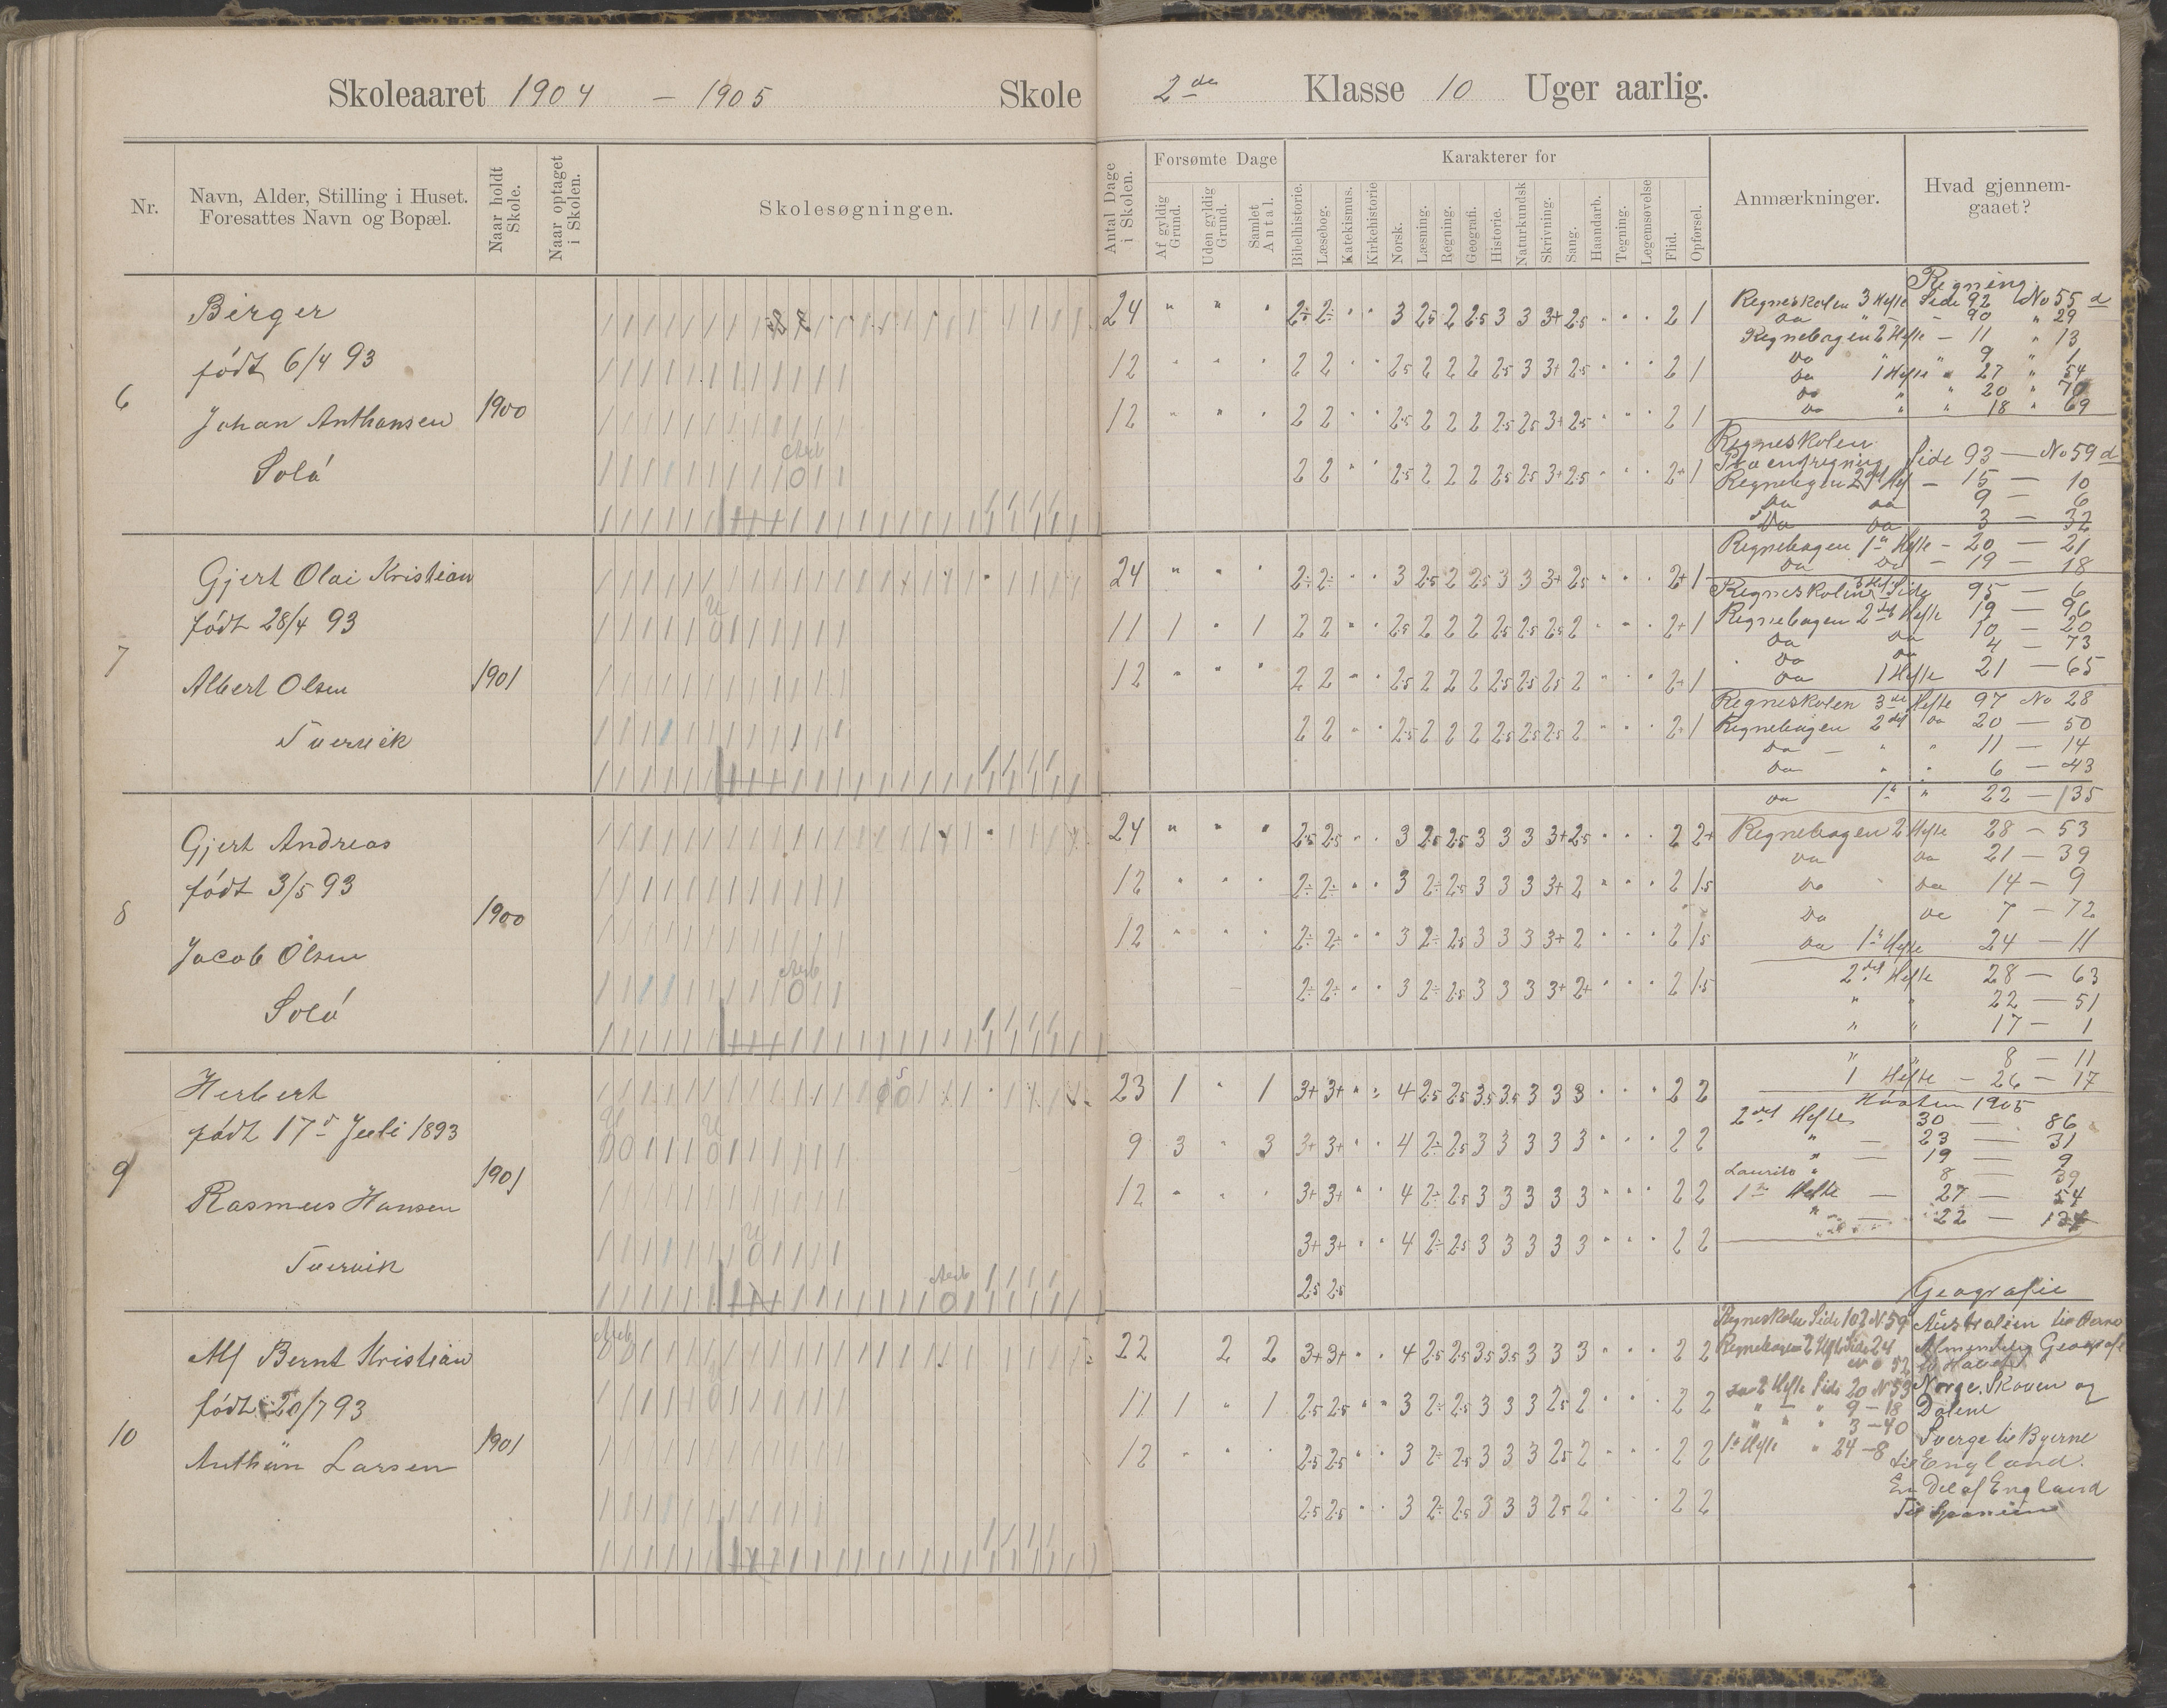 Skoleaaret 1904 - 1905 Skole 2de Klasse 10 Uger aarlig.
Nr.
Navn, Alder, Stilling i Huset.
Foresattes Navn og Bopæl.
Naar holdt Skole.
Naar optaget i Skolen.
Skolesøgningen.
Antal Dage i Skolen.
Forsømte Dage
Af gyldig Grund.
Uden gyldig Grund.
Samlet Antal.
Karakterer for
Bibelhistorie.
Læsebog.
Katekismus.
Kirkehistorie
Norsk.
Læsning.
Regning.
Geografi.
Historie.
Naturkundsk
Skrivning.
Sang.
Haandarb.
Tegning.
Legemsøvelse
Flid.
Opførsel.
Anmærkninger.
Hvad gjennem-
gaaet?
6
Birger
født 6/4 93
Johan Anthonsen
Solø
1900
24 " " " 2÷ 2÷ " " 3 2.5 2 2.5 3 3 3+ 2.5 " " " 2 1
12 " " " 2 2 " " 2.5 2 2 2 2.5 3 3+ 2.5 " " " 2 1
12 " " " 2 2 " " 2.5 2 2 2 2.5 2.5 3+ 2.5 " " " 2 1
2 2 " " 2.5 2 2 2 2.5 2.5 3+ 2.5 " " " 2+ 1
7
Gjert Olai Kristian
født 28/4 93
Albert Olsen
Tvervik
1901
24 " " " 2÷ 2÷ " " 3 2.5 2 2.5 3 3 3+ 2.5 " " " 2+ 1
11 1 " 1 2 2 " " 2.5 2 2 2 2.5 2.5 2.5 2 " " " 2+ 1
12 " " " 2 2 " " 2.5 2 2 2 2.5 2.5 2.5 2 " " " 2+ 1
2 2 " " 2.5 2 2 2 2.5 2.5 2.5 2 " " " 2+ 1
8
Gjert Andreas
født 3/5 93
Jacob Olsen
Solø
1900
24 " " " 2.5 2.5 " " 3 2.5 2.5 3 3 3 3+ 2.5 " " " 2 2+
12 " " " 2÷ 2÷ " " 3 2÷ 2.5 3 3 3 3+ 2 " " " 2 1.5
12 " " " 2÷ 2÷ " " 3 2÷ 2.5 3 3 3 3+ 2 " " " 2 1.5
2÷ 2÷ " " 3 2÷ 2.5 3 3 3 3+ 2+ " " " 2 1.5
9
Herbert
født 17de Juli 1893
Rasmus Hansen
Tvervik
1901
23 1 " 1 3+ 3+ " " 4 2.5 2.5 3.5 3.5 3 3 3 " " " 2 2
9 3 " 3 3+ 3+ " " 4 2÷ 2.5 3 3 3 3 3 " " " 2 2
12 " " " 3+ 3+ " " 4 2÷ 2.5 3 3 3 3 3 " " " 2 2
3+ 3+ " " 4 2÷ 2.5 3 3 3 3 3 " " " 2 2
2.5 2.5
10
Alf Bernt Kristian
født 20/7 93
Anthun Larsen
1901
22 2 2 3+ 3+ " " 4 2.5 2.5 3.5 3.5 3 3 3 " " " 2 2
11 1 " 1 2.5 2.5 " " 3 2÷ 2.5 3 3 3 2.5 2 " " " 2 2
12 " " " 2.5 2.5 " " 3 2÷ 2.5 3 3 3 2.5 2 " " " 2 2
2.5 2.5 " " 3 2÷ 2.5 3 3 3 2.5 2 " " 2 2
Regning
Regneskolen 3 Hefte Side 92 No 55 d
Do " - 90 " 29
Regnebogen 2 Hefte - 11 " 13
Do " " 9 " 1
Do 1 Hefte " 27 " 54
Do " " 20 " 70
Do " " 18 " 69
Regneskolen
Side 93 — No 59 d
Regnebogen 2det Hef - 15 — 10
Da Da 9 — 6
Da Da 3 — 32
Regnebogen 1ste Hefte - 20 — 21
Da Da - 19 — 18
Regneskolen 3 Hef. Side 95 — 6
Regnebogen 2det Hefte 19 — 96
Da Da 10 — 20
Da Da 4 — 73
Da 1 Hefte 21 — 65
Regneskolen 3die Hefte 97 No 28
Regnebogen 2det Da 20 — 50
Da — " " 11 — 14
Da " " 6 — 43
Da 1ste " 22 — 135
Regnebogen 2 Hefte 28 — 53
Da Da 21 — 39
Da Da 14 — 9
Da Da 7 — 72
Da 1ste Hefte 24 — 11
2det Hefte 28 — 63
" " 22 — 51
" " 17 — 1
" " 8 — 11
1 Hefte — 26 — 17
Høsten 1905
2det Hefte 30 — 86
" — 23 — 31
" — 19 — 9
Laurits " 8 — 39
1ste Hefte — 27 — 54
" — 22 — 134
Geografie
Regneskolen Side 102 N 59
Regnebogen 2 Hefte Side 24
2 Hefte Side 20 N 53
" " " 9 - 18
" " " 3 - 40
1ste Hefte " 24 - 8
Australien til Øerne
Almindelig Geografi
til Havet
Norge. Skoven og
Dalene
Sverge til Byerne
til England.
En Del af England
Til Spanien